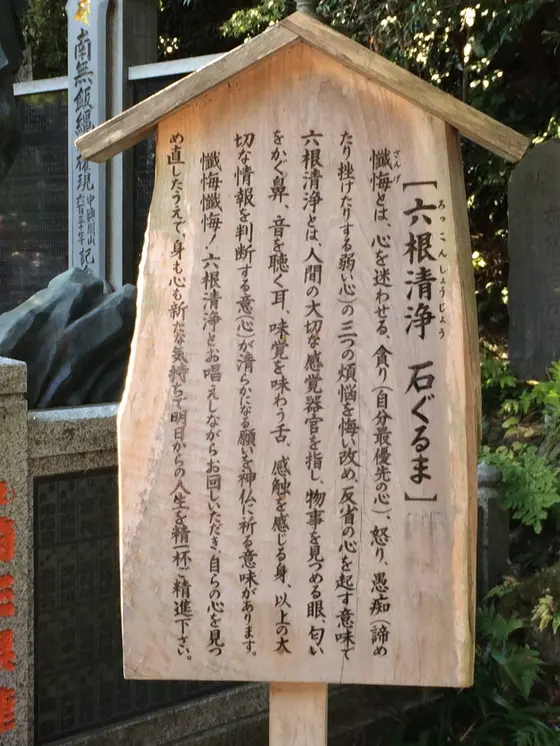 ［六根清浄　石ぐるま］
ろっこんしょうじょう
懺悔とは、心を迷わせる、貪り（自分最優先の心）、怒り、愚痴（諦め
さんげ
たり挫けたりする弱い心）の三つの煩悩を悔い改め、反省の心を起す意味で
六根清浄とは、人間の大切な感覚器官を指し、物事を見つめる眼、匂い
をかぐ鼻、音を聴く耳、味覚を味わう舌、感触を感じる身、以上の大
切な情報を判断する意（心）が清らかなる願いを神仏に祈る意味があります。
懺悔懺悔！六根清浄とお唱えしながらお回しいただき、自らの心を見つ
め直したうえで、身も心も新たな気持ちで明日からの人生を精一杯ご精進下さい。
南無飯縄権現
中興開山
六百三十年
記念